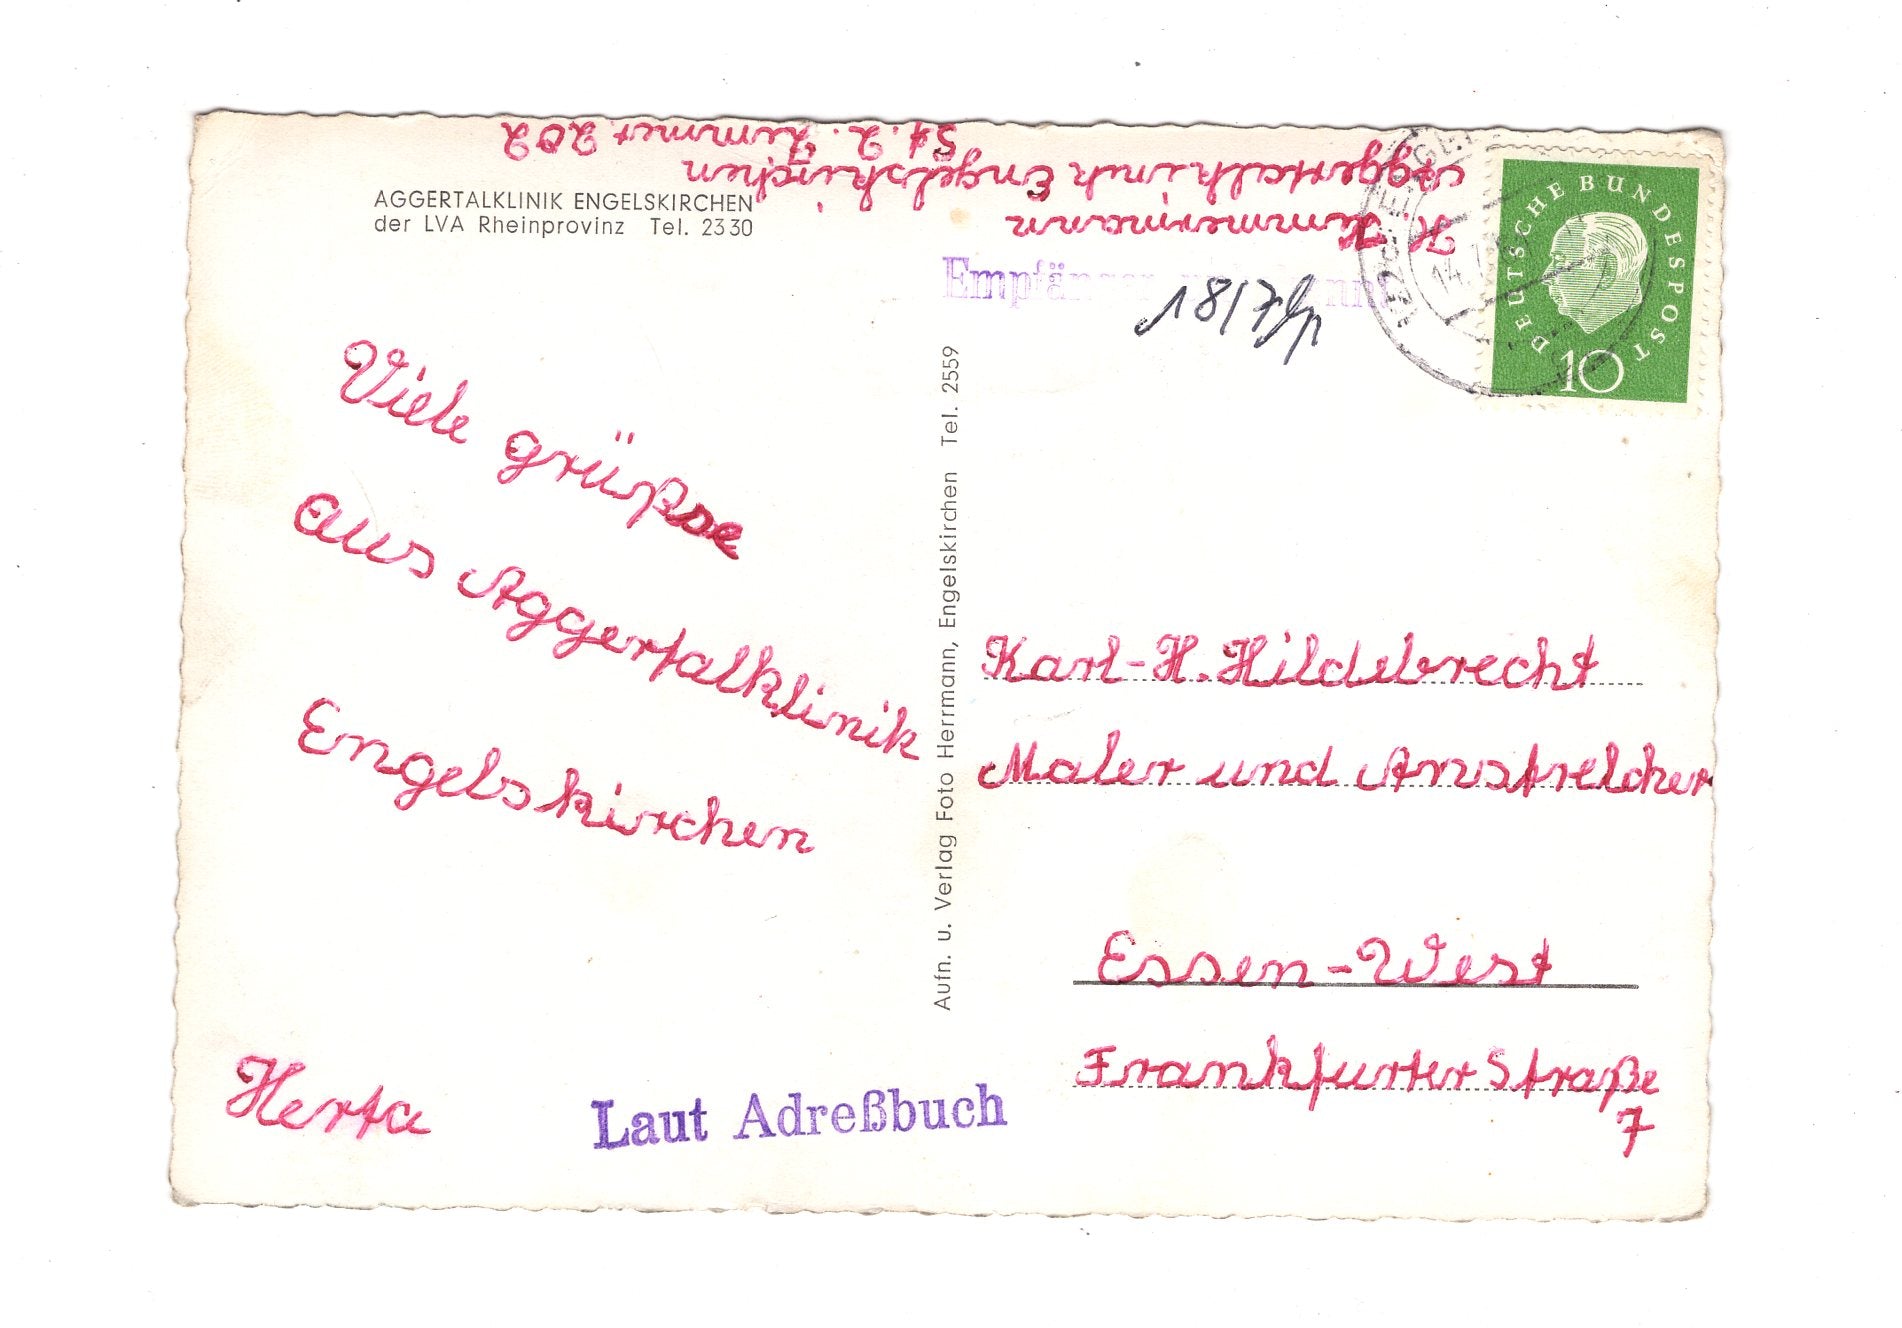 H. Hammermann
Aggertalklinik Engelskirchen
St. 2. Zimmer 202
AGGERTALKLINIK ENGELSKIRCHEN
der LVA Rheinprovinz Tel. 2330
Viele grüße
aus Aggertalklinik
Engelskirchen
Herta
Laut Adreßbuch
Aufn. u. Verlag Foto Herrmann, Engelskirchen Tel. 2559
Empfänger
18/7
DEUTSCHE BUNDESPOST
10
Karl-H. Hildebrecht
Maler und Anstreicher
Essen-West
Frankfurter Straße
7